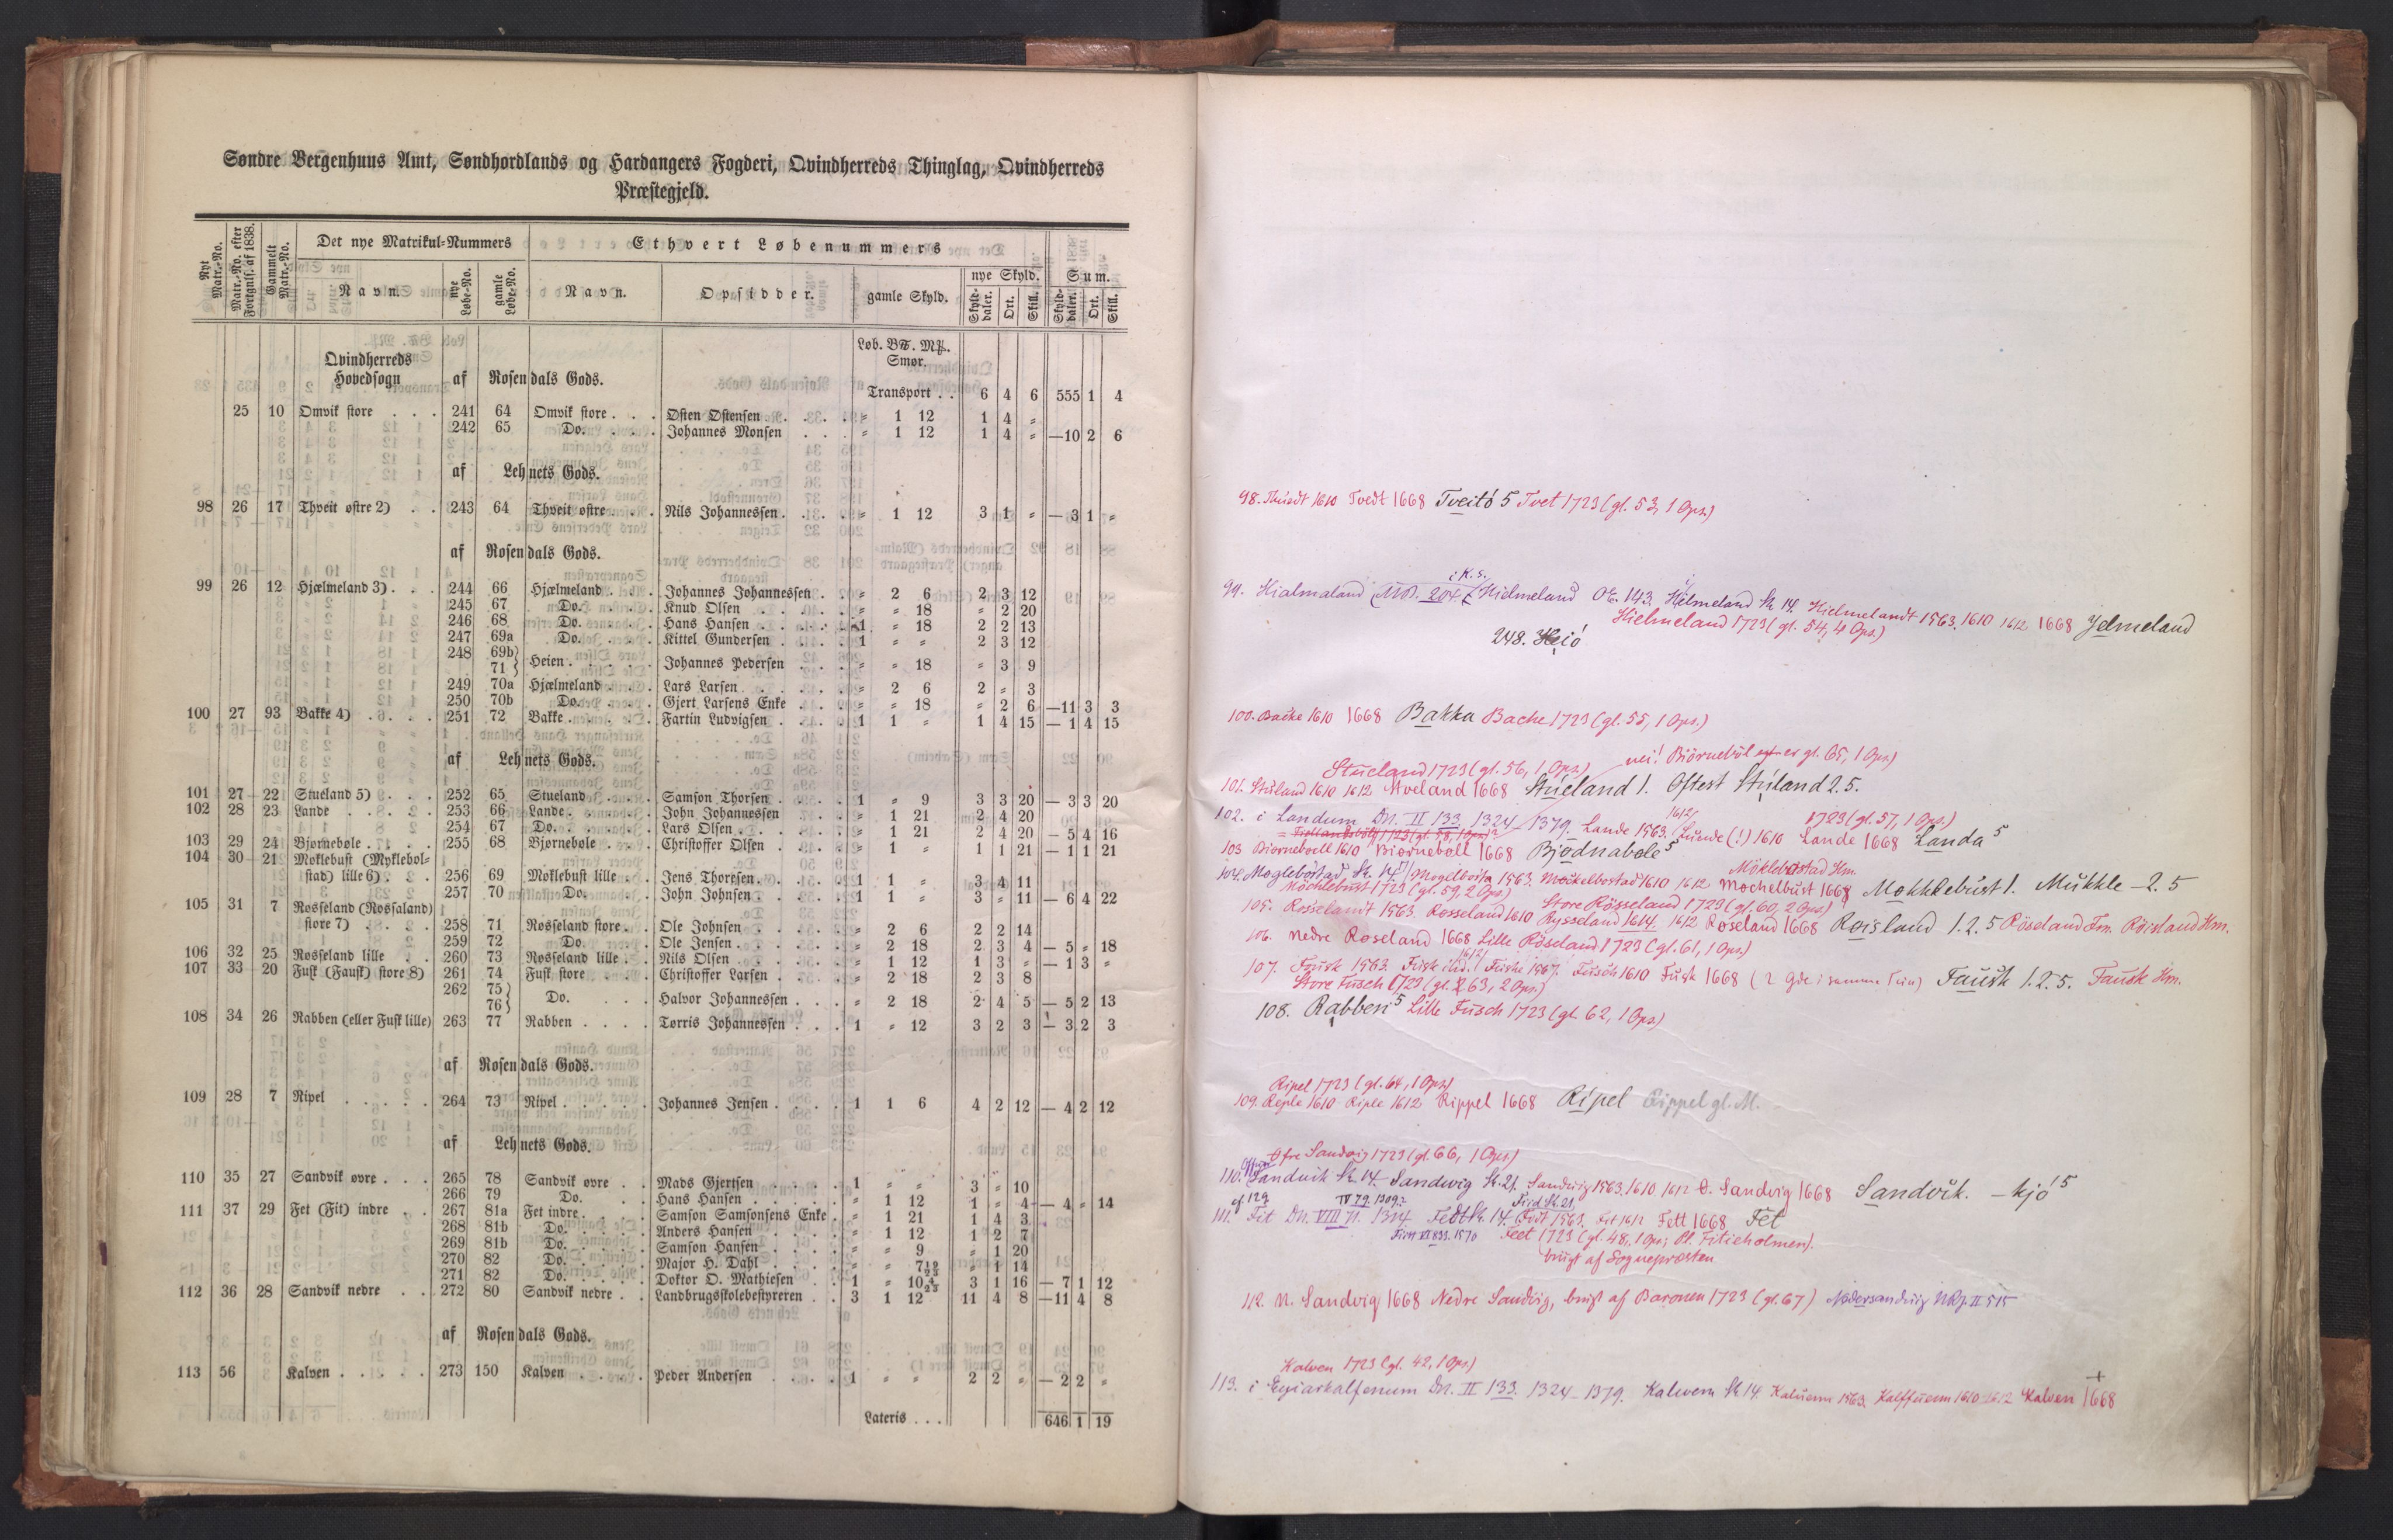 Søndre Bergenhuus Amt, Søndhordlands og Hardangers Fogderi, Qvindherreds Thinglag, Qvindherreds
Præstegjeld.
Nyt Matr.-No.
Matr.-No. efter Fortgnlf. af 1838.
Gammelt Matr.-No.
Det nye Matrikul-Nummers
Ethvert Løbenummers
Navn.
nye Løbe-No.
gamle Løbe-No.
Navn.
Opsidder.
gamle Skyld.
nye Skyld.
Sum.
Skylddaler. Ort. Skill. Skylddaler. Ort. Skill.
Løb. B℔. M℔.
Qvindherreds Smør.
Hovedsogn af Rosendals Gods.
Transport . . 6 4 6 555 1 4
25 10 Omvik store . . . 241 64 Omvik store . . . Østen Østensen . . . . = 1 12 1 4 =
242 65 Do. . . . Johannes Monsen . . . = 1 12 1 4 = — 10 2 6
af Lehnets Gods.
98 26 17 Thveit østre 2) . . 243 64 Thveit østre . . . Nils Johannessen . . . = 1 12 3 1 = — 3 1 =
af Rosendals Gods.
99 26 12 Hjælmeland 3) . . . 244 66 Hjælmeland . . . Johannes Johannessen . . = 2 6 2 3 12
245 67 Do. . . . Knud Olsen . . . . = = 18 = 2 20
246 68 Do. . . . Hans Hansen . . . . 1 = 18 2 2 13
247 69a Do. . . . Kittel Gundersen . . . 1 = = 2 3 12
248 69b}
71} Heien . . . . Johannes Pedersen . . . = = 18 = 3 9
249 70a Hjælmeland . . . Lars Larsen . . . . = 2 6 2 = 3
250 70b Do. . . . Gjert Larsens Enke . . . = = 18 = 2 6 — 11 3 3
100 27 93 Bakke 4) . . . . 251 72 Bakke . . . . Fartin Ludvigsen . . . 1 1 = 1 4 15 — 1 4 15
af Lehnets Gods.
101 27 22 Stueland 5) . . . 252 65 Stueland . . . Samson Thorsen . . . 1 = 9 3 3 20 — 3 3 20
102 28 23 Lande . . . . 253 66 Lande . . . . John Johannessen . . . 1 21 2 4 20
254 67 Do. . . . Lars Olsen . . . . 1 21 2 4 20 — 5 4 16
103 29 24 Bjørnebøle . . . 255 68 Bjørnebøle . . . Christoffer Olsen . . . = 1 = 1 1 21 — 1 1 21
104 30 21 Møklebust (Myklebol-
stad) lille 6) . . . 256 69 Møklebust lille . . Jens Thoresen . . . 1 1 = 3 4 11
257 70 Do. . . . John Johnsen . . . . 1 1 = 3 = 11 — 6 4 22
105 31 7 Røsseland (Røssaland)
store 7) . . . . 258 71 Røsseland store . . Ole Johnsen . . . . = 2 6 2 2 14
259 72 Do. . . . Ole Jensen . . . . = 2 18 2 3 4 — 5 = 18
106 32 25 Røsseland lille . . 260 73 Røsseland lille . . Nils Olsen . . . . = 1 12 1 3 = — 1 3 =
107 33 20 Fusk (Fausk) store 8) 261 74 Fusk store . . . Christoffer Larsen . . . = 2 18 2 3 8
262 75}
76} Do. . . . Halvor Johannessen . . . = 2 18 2 4 5 — 5 2 13
108 34 26 Rabben (eller Fusk lille) 263 77 Rabben . . . . Torris Johannessen . . . 1 = 12 3 2 3 — 3 2 3
af Rosendals Gods.
109 28 7 Ripel . . . . . 264 73 Ripel . . . . . Johannes Jensen . . . . 1 1 6 4 2 12 — 4 2 12
af Lehnets Gods.
110 35 27 Sandvik øvre . . . 265 78 Sandvik øvre . . Mads Gjertsen . . . . 1 = = 3 = 10
266 79 Do. . . Hans Hansen . . . . = 1 12 1 = 4 — 4 = 14
111 37 29 Fet (Fit) indre . . 267 81a Fet indre . . . Samson Samsonsens Enke . = 1 21 1 4 3
268 81b Do. . . . Anders Hansen . . . = 1 12 1 2 7
269 81b Do. . . . Samson Hansen . . . = = 9 = 1 20
270 82 Do. . . . Major H. Dahl . . . = = 7 19/23 = 1 14
271 82 Do. . . . Doktor O. Mathiesen . . 1 = 10 4/23 3 1 16 — 7 1 12
112 36 28 Sandvik nedre . . 272 80 Sandvik nedre . . Landbrugsskolebestyreren . . 3 1 12 11 4 8 — 11 4 8
af Rosendals Gods.
113 56 Kalven . . . . . 273 150 Kalven . . . . Peder Andersen . . . . 1 = = 2 2 = — 2 2 =
Lateris . . . 646 1 19
98. Thuedt 1610 Tvedt 1668 Tveitó 5 Tvet 1723 (gl. 53, 1 Ops.)
i K. S.
99. Hialmaland (MB. 204) Hielmeland OE. 143. Hjelmeland Sk. 14. Hielmelandt 1563. 1610 1612 1668 Jelmeland
Hielmeland 1723 (gl. 54, 4 Ops.)
248. Heió
100. Backe 1610 1668 Bakka Bache 1723 (gl. 55, 1 Ops.)
nei! Biörneböl er gl. 65, 1 Ops.)
Stueland 1723 (gl. 56, 1 Ops.)
101. Stüland 1610 1612 Stveland 1668 Stúeland 1. Oftest Stúland 2.5.
1612 1723 (gl. 57, 1 Ops.)
102. i Landum Dn. II 133. 1324–1379. Lande 1563. Luende (!) 1610 Lande 1668 Landa 5
103 Biorneboell 1610 Biörneböll 1668 Bjødnabøle 5
Möklebostad Hm.
104. Moglebostad, Sk. 14. 1563. Möckelbostad 1610 1612 Mochelbust 1668 Mokklebúst 1. Mükkle – 2. 5
Möchlebust 1723 (gl. 59, 2 Ops.) Store Rösseland 1723 (gl. 60, 2 Ops.)
105. Rosselandt 1563. Rosseland 1610 Rysseland 1614. 1612 Roseland 1668 Røisland 1.2.5 Röseland Fm. Röisland Hm.
106. Nedre Roseland 1668 Lille Röseland 1723 (gl. 61, 1 Ops.)
1612
107. Fusk 1563. Fusk ibid. Fuske 1567. Fusch 1610 Fusk 1668 (2 Gde i samme Tun) Faúsk 1.2.5. Fausk Hm.
Store Fusch 1723 (gl. 63, 2 Ops.)
108. Rabben 5 Lille Fusch 1723 (gl. 62, 1 Ops.)
Ripel 1723 (gl. 64, 1 Ops.)
109. Reple 1610 Riple 1612 Rippel 1668 Rípel Rippel gl. M.
Øfre Sandvig 1723 (gl. 66, 1 Ops.)
110. Sandvik Sk. 14. Sandwig Sk. 21. Sandwig 1563. 1610 1612 Ö. Sandvig 1668 Sandvik. – kjó 5
cf. 129 IV 79. 1309.?
111. Fit Dn. VIII 71. 1314. Fedt Sk. 14. Fedt 1563. Fit 1612 Fett 1668 Fet
Feet 1723 (gl. 48, 1 Ops; Pl. Fitieholmen).
brugt af Sognepresten
112. N. Sandvig 1668 Nedre Sandvig, brugt af Baronen 1723 (gl. 67) Nedersandviig NRJ. II 515
Kalven 1723 (gl. 42, 1 Ops.)
113. i Eyiarkalfenum Dn. II 133. 1324–1379. Kalwenn Sk 14. Kaluenn 1563. Kalffuenn 1610 1612 Kalven 1668